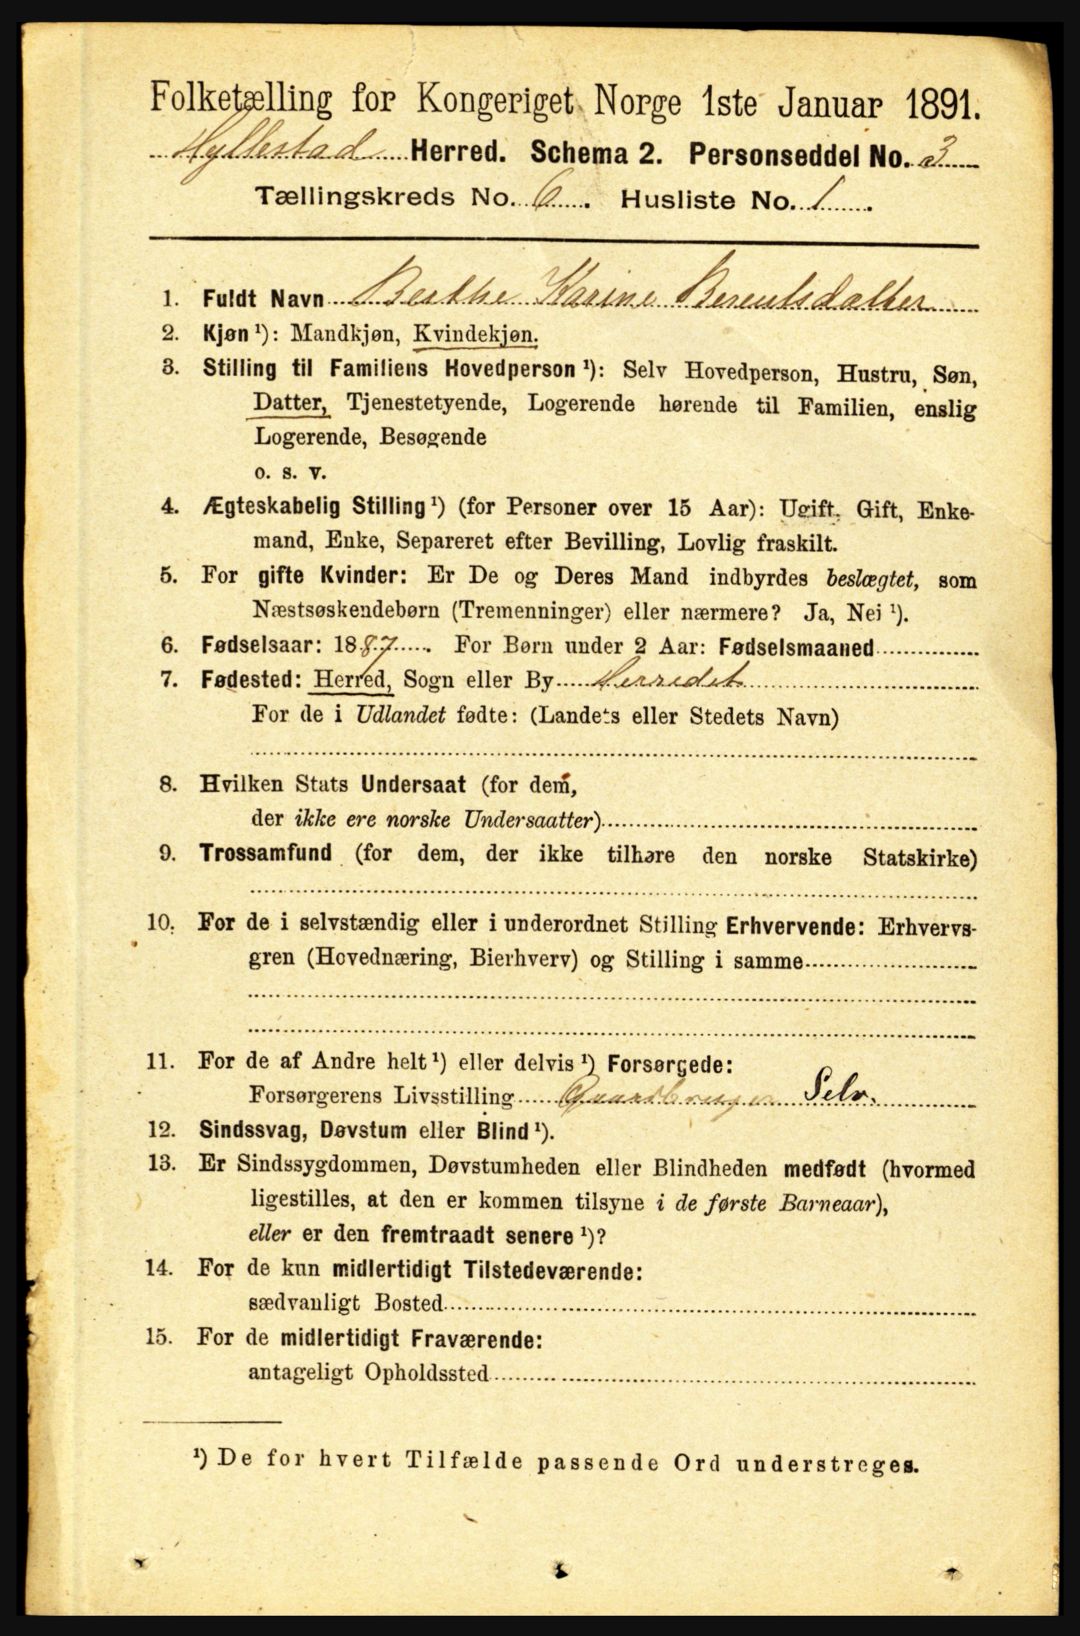 Folketælling for Kongeriget Norge 1ste Januar 1891.
Hyllestad Herred. Schema 2. Personseddel No. 3
Tællingskreds No. 6. Husliste No. 1.
1. Fuldt Navn Berthe Karine Berentsdatter
2. Kjøn ¹): Mandkjøn, Kvindekjøn.
3. Stilling til Familiens Hovedperson ¹): Selv Hovedperson, Hustru, Søn,
Datter, Tjenestetyende, Logerende hørende til Familien, enslig
Logerende, Besøgende
o. s. v.
4. Ægteskabelig Stilling ¹) (for Personer over 15 Aar): Ugift, Gift, Enke-
mand, Enke, Separeret efter Bevilling, Lovlig fraskilt.
5. For gifte Kvinder: Er De og Deres Mand indbyrdes beslægtet, som
Næstsøskendebørn (Tremenninger) eller nærmere? Ja, Nei ¹).
6. Fødselsaar: 1887. For Børn under 2 Aar: Fødselsmaaned
7. Fødested: Herred, Sogn eller By Herredet
For de i Udlandet fødte: (Landets eller Stedets Navn)
8. Hvilken Stats Undersaat (for dem,
der ikke ere norske Undersaatter)
9. Trossamfund (for dem, der ikke tilhøre den norske Statskirke)
10. For de i selvstændig eller i underordnet Stilling Erhvervende: Erhvervs-
gren (Hovednæring, Bierhverv) og Stilling i samme
11. For de af Andre helt ¹) eller delvis ¹) Forsørgede:
Forsørgerens Livsstilling Gaardbruger Selv.
12. Sindssvag, Døvstum eller Blind ¹).
13. Er Sindssygdommen, Døvstumheden eller Blindheden medfødt (hvormed
ligestilles, at den er kommen tilsyne i de første Barneaar),
eller er den fremtraadt senere ¹)?
14. For de kun midlertidigt Tilstedeværende:
sædvanligt Bosted
15. For de midlertidigt Fraværende:
antageligt Opholdssted
¹) De for hvert Tilfælde passende Ord understreges.